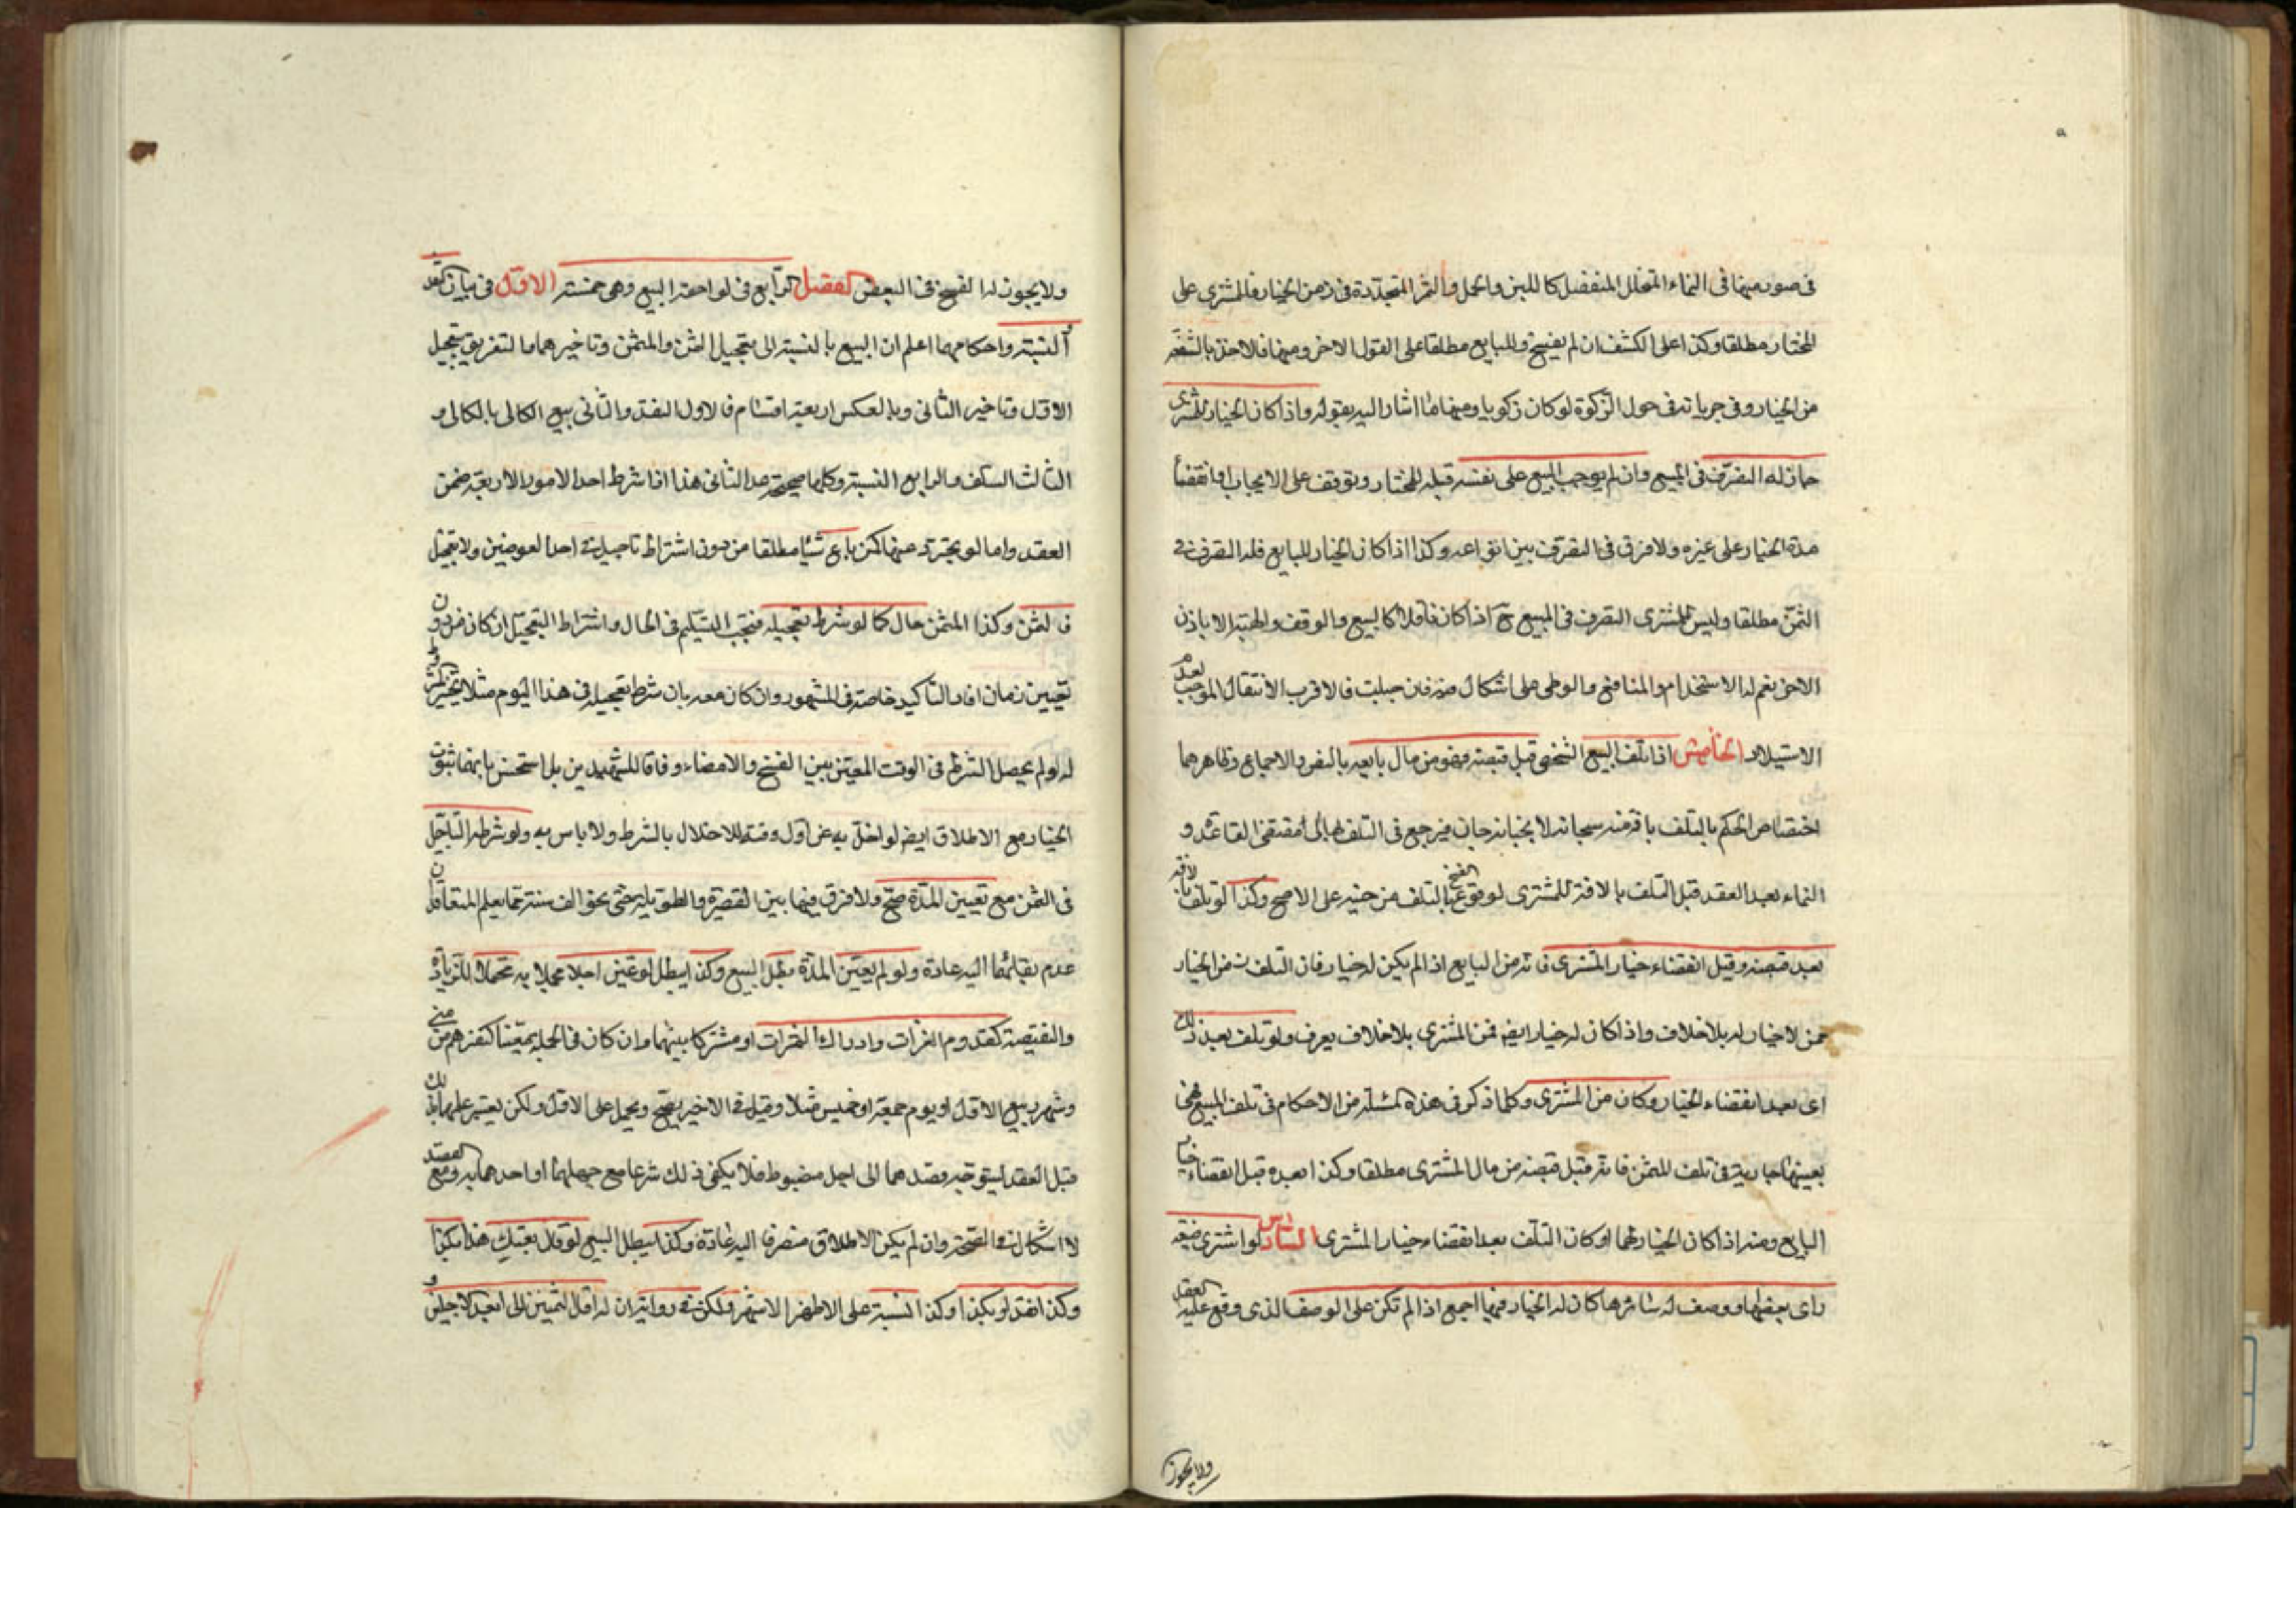 في صور منها في النماء المتخلل المنفصل كاللبن والحمل والثمر المتجددة في زمن الخيار فللمشتري على
المختار مطلقا وكذا على الكشف ان لم يفسخ وللبايع مطلقا على القول الاخر ومنها فالاخذ بالشفعة
من الخيار وفي جريانه في حول الزكوة لو كان زكويا ومنها ما اشار اليه بقوله واذا كان الخيار للمشتري
جاز له التصرف في المبيع وان لم يوجب البيع على نفسه قبله للمختار وتوقف على الايجاب او انقضاء
مدة الخيار على غيره ولا فرق في التصرف بين انواعه وكذا اذا كان الخيار للبايع فله التصرف في
الثمن مطلقا وليس للمشتري التصرف في المبيع ح اذا كان ناقلا كالبيع والوقف والهبة الا باذن
الاخر نعم له الاستخدام والمنافع والوطى على اشكال منه فان حبلت فالاقرب الانتقال الموجب لعدم
الاستيلاد الخامس اذا تلف المبيع الشخصي قبل قبضه فهو من مال بايعه بالنص والاجماع وظاهرهما
اختصاص الحكم بالتلف بافة منه سبحانه لا بخيانة جان فيرجع في التلف بها الى مقتضى القاعدة و
النماء بعد العقد قبل التلف بالافة للمشتري لوقوع الفسخ بالتلف من حينه على الاصح وكذا لو تلف بافة
بعد قبضه وقبل انقضاء خيار المشتري فانه من البايع اذا لم يكن له خيار فان التلف في زمن الخيار
ممن لا خيار له بلا خلاف واذا كان له خيار ايضا فمن المشتري بلا خلاف يعرف ولو تلف بعد ذلك
اى بعد انقضاء الخيار وكان من المشتري وكلما ذكر في هذه المسئلة من الاحكام في تلف المبيع فهي
بعينها جارية في تلف الثمن فانه قبل قبضه من مال المشتري مطلقا وكذا بعده قبل انقضاء خيار
البايع ومنه اذا كان الخيار لهما او كان التلف بعد انقضاء خيار المشتري السادس لو اشترى ضيعة
راى بعضها ووصف له سائرها كان له الخيار فيها اجمع اذا لم تكن على الوصف الذي وقع عليه العقد
ولا يجوز
ولا يجوز له الفسخ في البعض الفصل الرابع في لواحق البيع وهي خمسة الاول في بيان النقد
و النسية واحكامهما اعلم ان البيع بالنسبة الى تعجيل الثمن والمثمن وتاخيرهما والتفريق بتعجيل
الاول وتاخير الثاني وبالعكس اربعة اقسام فالاول النقد والثاني بيع الكالي بالكالي و
الثالث السلف والرابع النسية وكلها صحيحة عدا الثاني هذا اذا شرط احد الامور الاربعة ضمن
العقد واما لو تجرد عنها كمن باع شيئا مطلقا من دون اشتراط تاجيل في احد العوضين ولا تعجيل
فالثمن وكذا المثمن حال كما لو شرط تعجيله فيجب التسليم في الحال واشتراط التعجيل ان كان من دون
تعيين زمان افاد التاكيد خاصة في المشهور وان كان معه بان شرط تعجيله في هذا اليوم مثلا تخير
له لو لم يحصل الشرط في الوقت المعين بين الفسخ والامضاء وفاقا للشهيدين بل استحسن ثانيهما ثبوت
الخيار مع الاطلاق ايضا لو اخل به عن اول وقته للاخلال بالشرط ولا باس به ولو شرط التاجيل
في الثمن مع تعيين المدة صح ولا فرق فيها بين القصيرة والطويلة حتى نحو الف سنة مما يعلم المتعاقدان
عدم بقائهما اليه عادة ولو لم يعين المدة بطل البيع وكذا يبطل لو عين اجلا مجهلا به محتملا للزيادة
والنقيصة كقدوم الغزاة وادراك الثمرات او مشتركا بينهما وان كان في الجملة معينا كنفرهم من منى
وشهر ربيع الاول او يوم جمعة او خميس مثلا وقيل في الاخير يصح ويحمل على الاول ولكن يعتبر علمهما بذلك
قبل العقد ليتوجه قصدهما الى اجل مضبوط فلا يكفي في ذلك شرعا مع جهلهما او احدهما به ومع القصد
لا اشكال في الصحة وان لم يكن الاطلاق منصرفا اليه عادة وكذا يبطل البيع لو قال بعتك هذا بكذا
وكذا نقدا وبكذا وكذا نسية على الاظهر الاشهر ولكن في رواية ان له اقل الثمنين الى ابعد الاجلين و